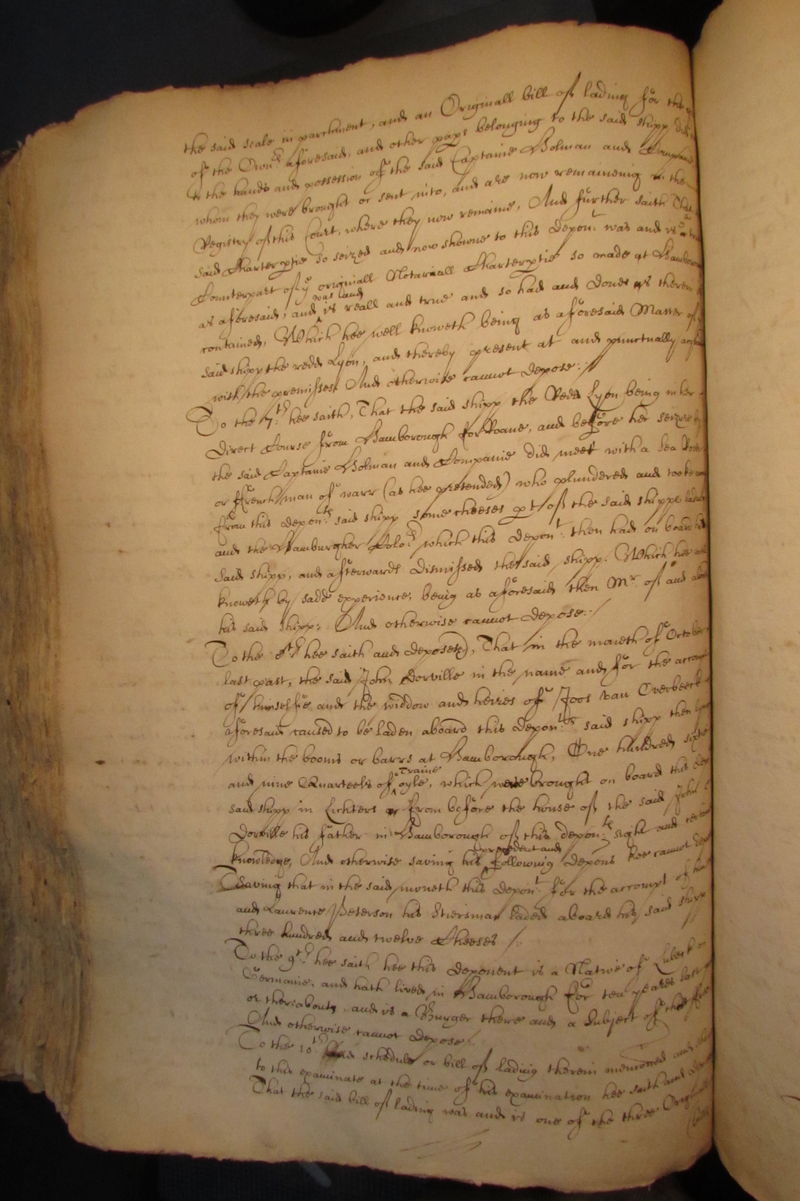 the said scale in parchment, and an Originall bill of lading for the
of theOwn:rs aforesaid, and other pap:s belonging to the said shipp did
the hands and possession of the said Captaine Bolman and Companie
whom they were brought or sent into, and are now remaineing in the
Registry of this Court, where they now remaine, And further saith That
said Charterptie so seized and now showne to this depon:t was and is a true
Counterpart of y:e originall Notariall Charterptie so made at Hamborough
as aforesaid, and was and is reall and true and so had and done as therein
contained, Which hee well knoweth being as aforesaid Master of
said shipp the redd Lyon, and thereby present at and punctually
with the premisses And otherwise cannot depose./
To the 7:th hee saith, That the said shipp the Redd Lyon being in her
direct Course from Hamborough for Roane, and before her seizure by
the said Captaine Bolman and Companie did meet with a Sea
or ffrenchman of warr (as hee pretended) who plundered and tooke
from this depon:ts said shipp some cheeses pt of the said shipps lading
and the Hamburgher Colo:rs which this depon:t then had on board his
said shipp, and afterwards dismissed the said shipp. Which hee
knoweth by sadd experience, being as aforesaid then M:r of and
his said shipp: And otherwise cannot depose./
To the 8:th hee saith and deposeth, That in the moneth of October
last past, the said John Dorville in the name and for the accompt
of himselfe and the widdow and heires of Joos van Overbeeck
aforesaid caused to be laden aboard this depon:ts said shipp then
within the booms or barrs at Hamborough, One hundred
and nine Quarteels of traine oyle, which were brought on board this
said shipp in Lichters from before the house of the said John
Dorville his father in Hamborough of this depon:ts sight and
knowledge, And otherwise saving his precedent and following depons hee cannot
Saving that in the said moneth this depon:t for the accompt of
and Laurence Peterson his Stiersman laded aboard his said shipp
three hundred and twelve Cheeses /.
To the 9:th hee saith hee this deponent is a Native of Lubeck in
Germanie, and hath lived in Hamborough for ten yeares last
or thereabouts, and is a Burger there and a Subject of
And otherwise cannot depose.
To the 10:th schedule or bill of lading therein menconed and
to this examinate at the time of his examination hee saith and
That the said bill of lading was and is one of the three Originall